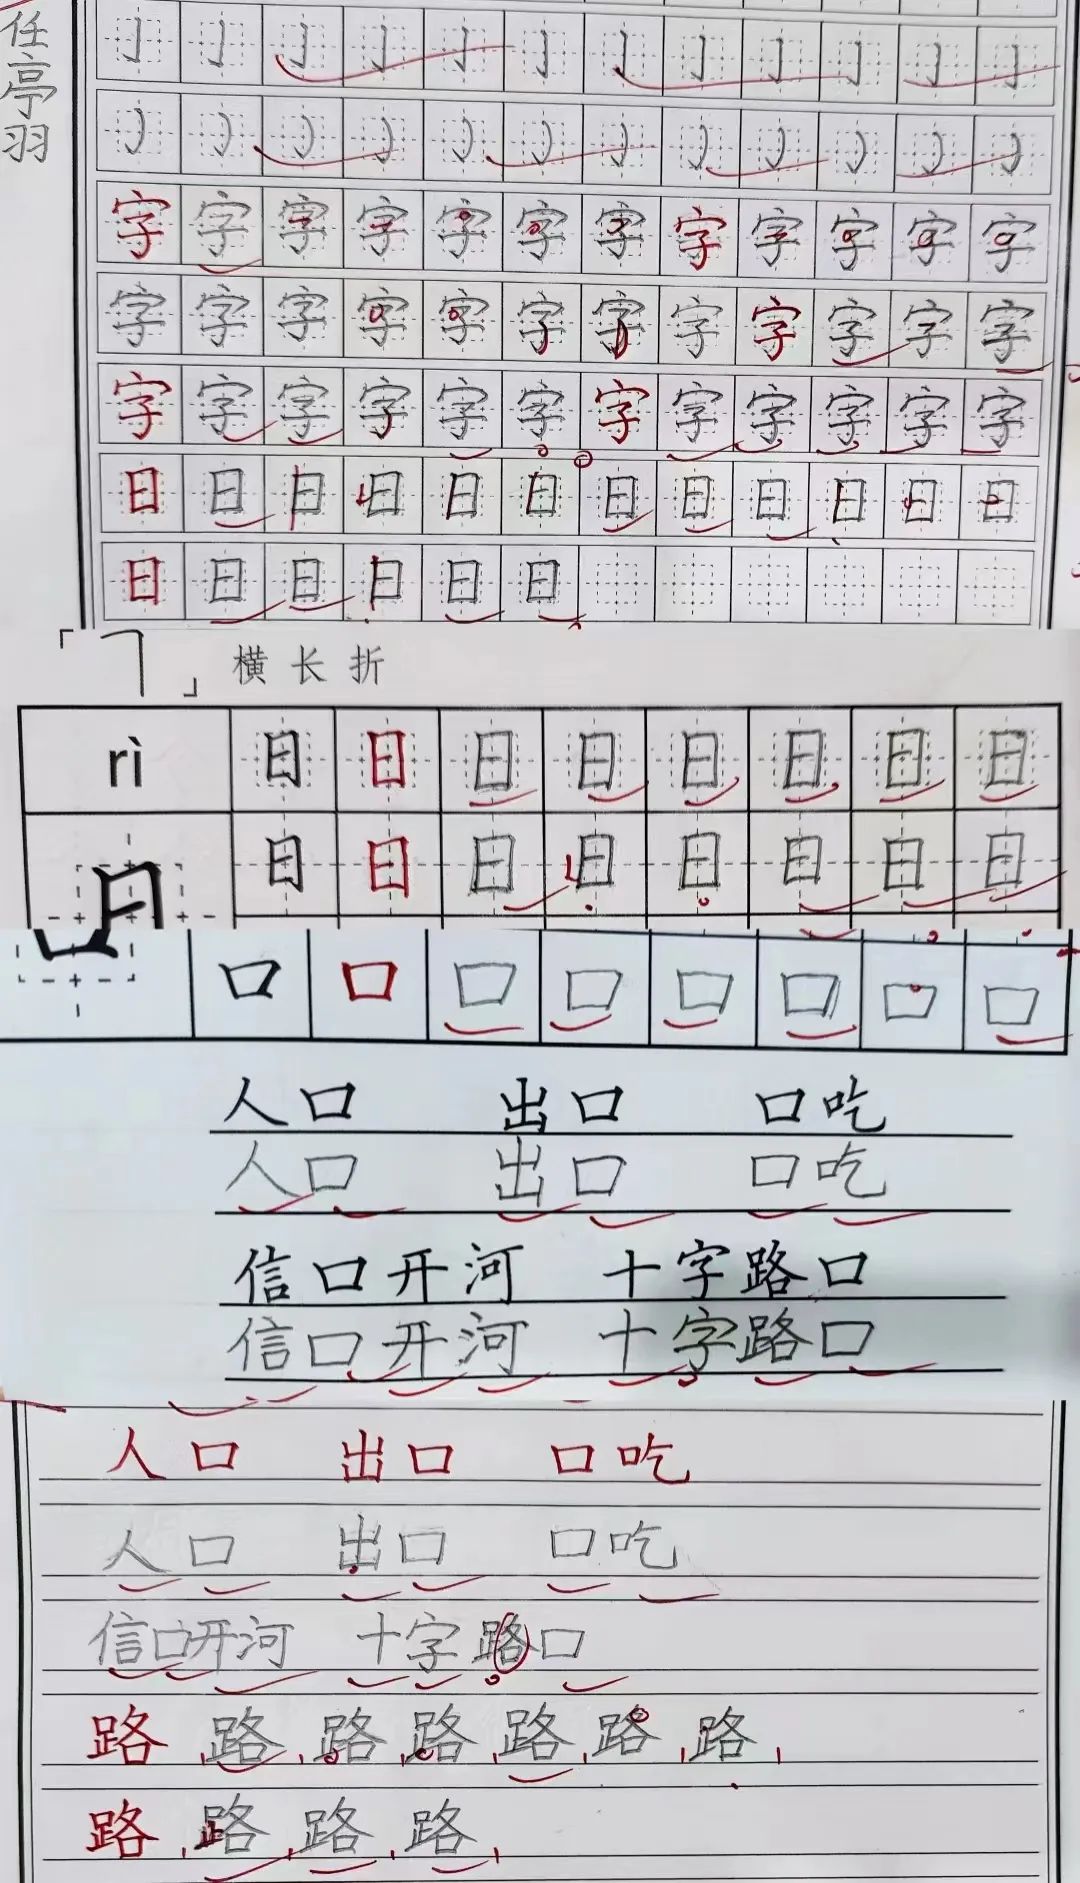 任亭羽
亅 亅 亅 亅 亅 亅 亅 亅 亅 亅 亅 亅
㇁ ㇁ ㇁ ㇁ ㇁ ㇁ ㇁ ㇁ ㇁ ㇁ ㇁ ㇁
字 字 字 字 字 字 字 字 字 字 字 字
字 字 字 字 字 字 字 字 字 字 字 字
字 字 字 字 字 字 字 字 字 字 字 字
日 日 日 日 日 日 日 日 日 日 日 日
日 日 日 日 日 日
「㇕」 横长折
rì 日 日 日 日 日 日 日 日
日 日 日 日 日 日 日 日
口 口 口 口 口 口 口 口
人口 出口 口吃
人口 出口 口吃
信口开河 十字路口
信口开河 十字路口
人口 出口 口吃
人口 出口 口吃
信口开河 十字路口
路 路 路 路 路 路 路
路 路 路 路